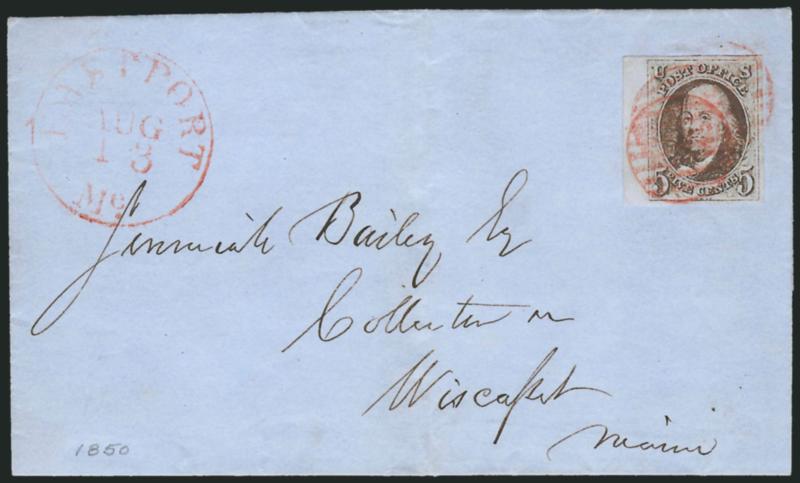 EASTPORT
AUG
13
Me
U S
POST OFFICE
5 FIVE CENTS 5
Jeremiah Bailey Esq
Collector
Wiscasset
Maine
1850